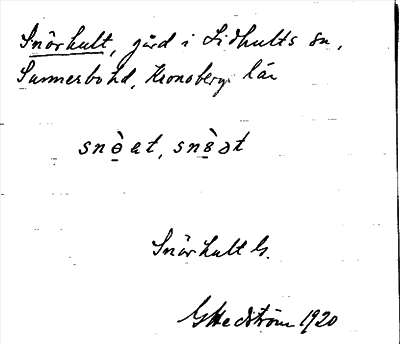 Snörhult, gård i Lidhults sn,
Sunnerbo hd, Kronobergs län
snɵ̀at, snɵ̀ət
Snörhult G.
G Hedström 1920